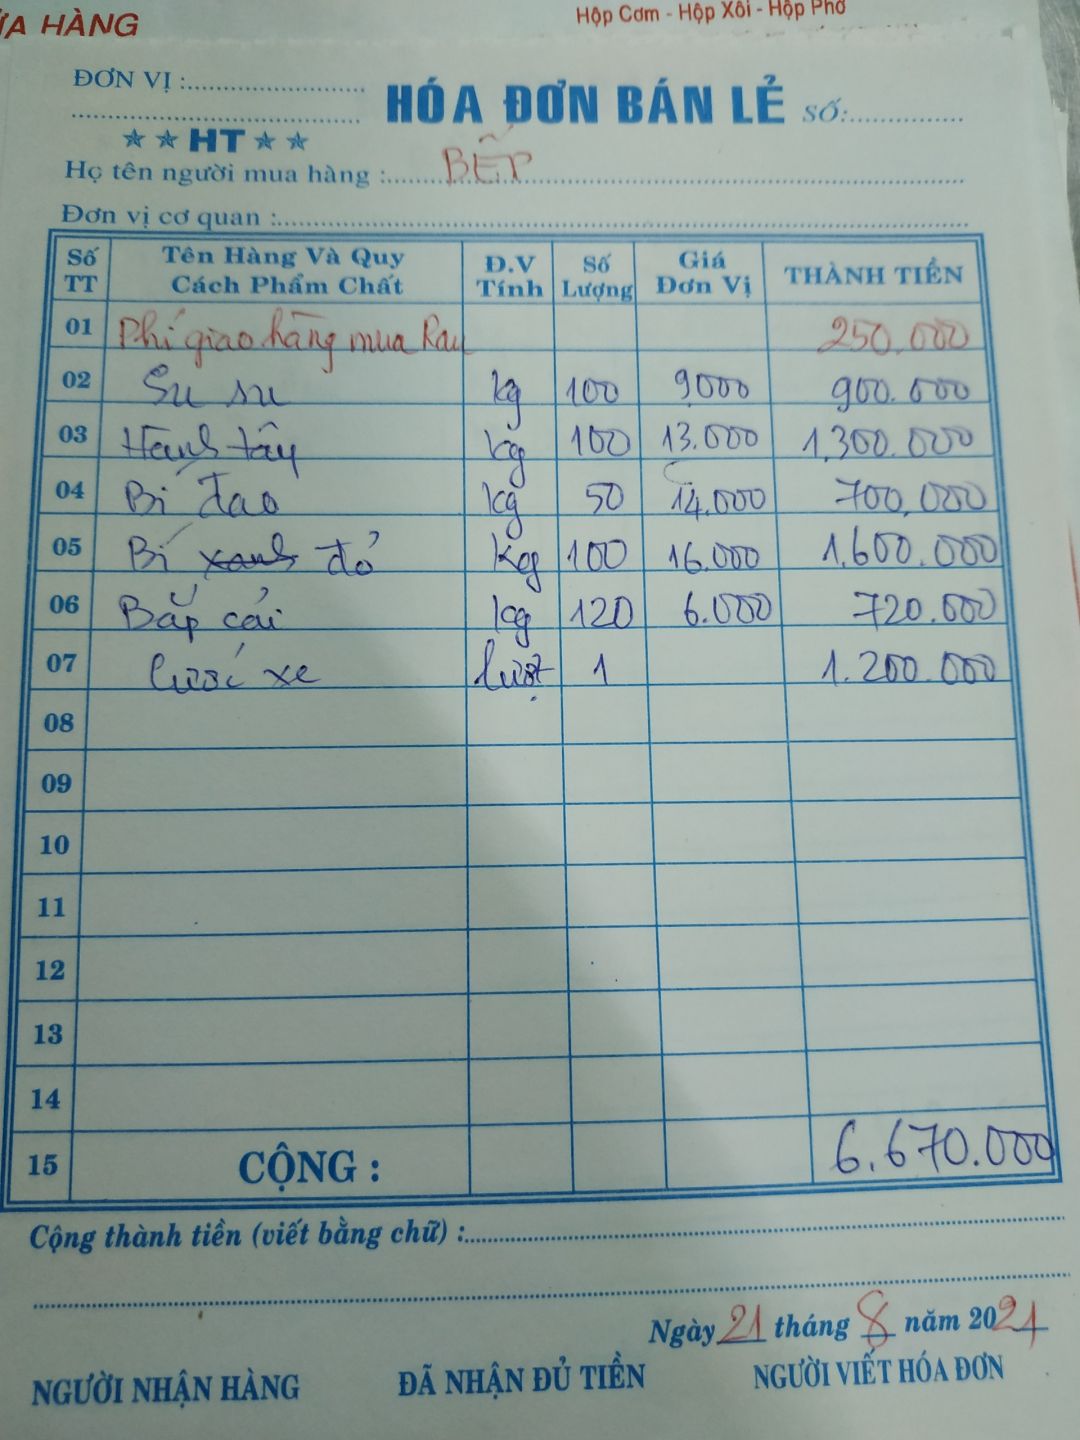 ỬA HÀNG
Hộp Cơm - Hộp Xôi - Hộp Phở
ĐƠN VỊ :
HÓA ĐƠN BÁN LẺ SỐ:
HT
Họ tên người mua hàng : BẾP
Đơn vị cơ quan :
Số TT Tên Hàng Và Quy Cách Phẩm Chất Đ.V Tính Số Lượng Giá Đơn Vị THÀNH TIỀN
01 Phí giao hàng mua Rau 250.000
02 Su su kg 100 9000 900.000
03 Hành tây kg 100 13.000 1.300.000
04 Bí đao kg 50 14.000 700.000
05 Bí xanh đỏ Kg 100 16.000 1.600.000
06 Bắp cải kg 120 6.000 720.000
07 Cước xe lượt 1 1.200.000
08
09
10
11
12
13
14
15 CỘNG : 6.670.000
Cộng thành tiền (viết bằng chữ) :
Ngày 21 tháng 8 năm 2021
NGƯỜI NHẬN HÀNG ĐÃ NHẬN ĐỦ TIỀN NGƯỜI VIẾT HÓA ĐƠN